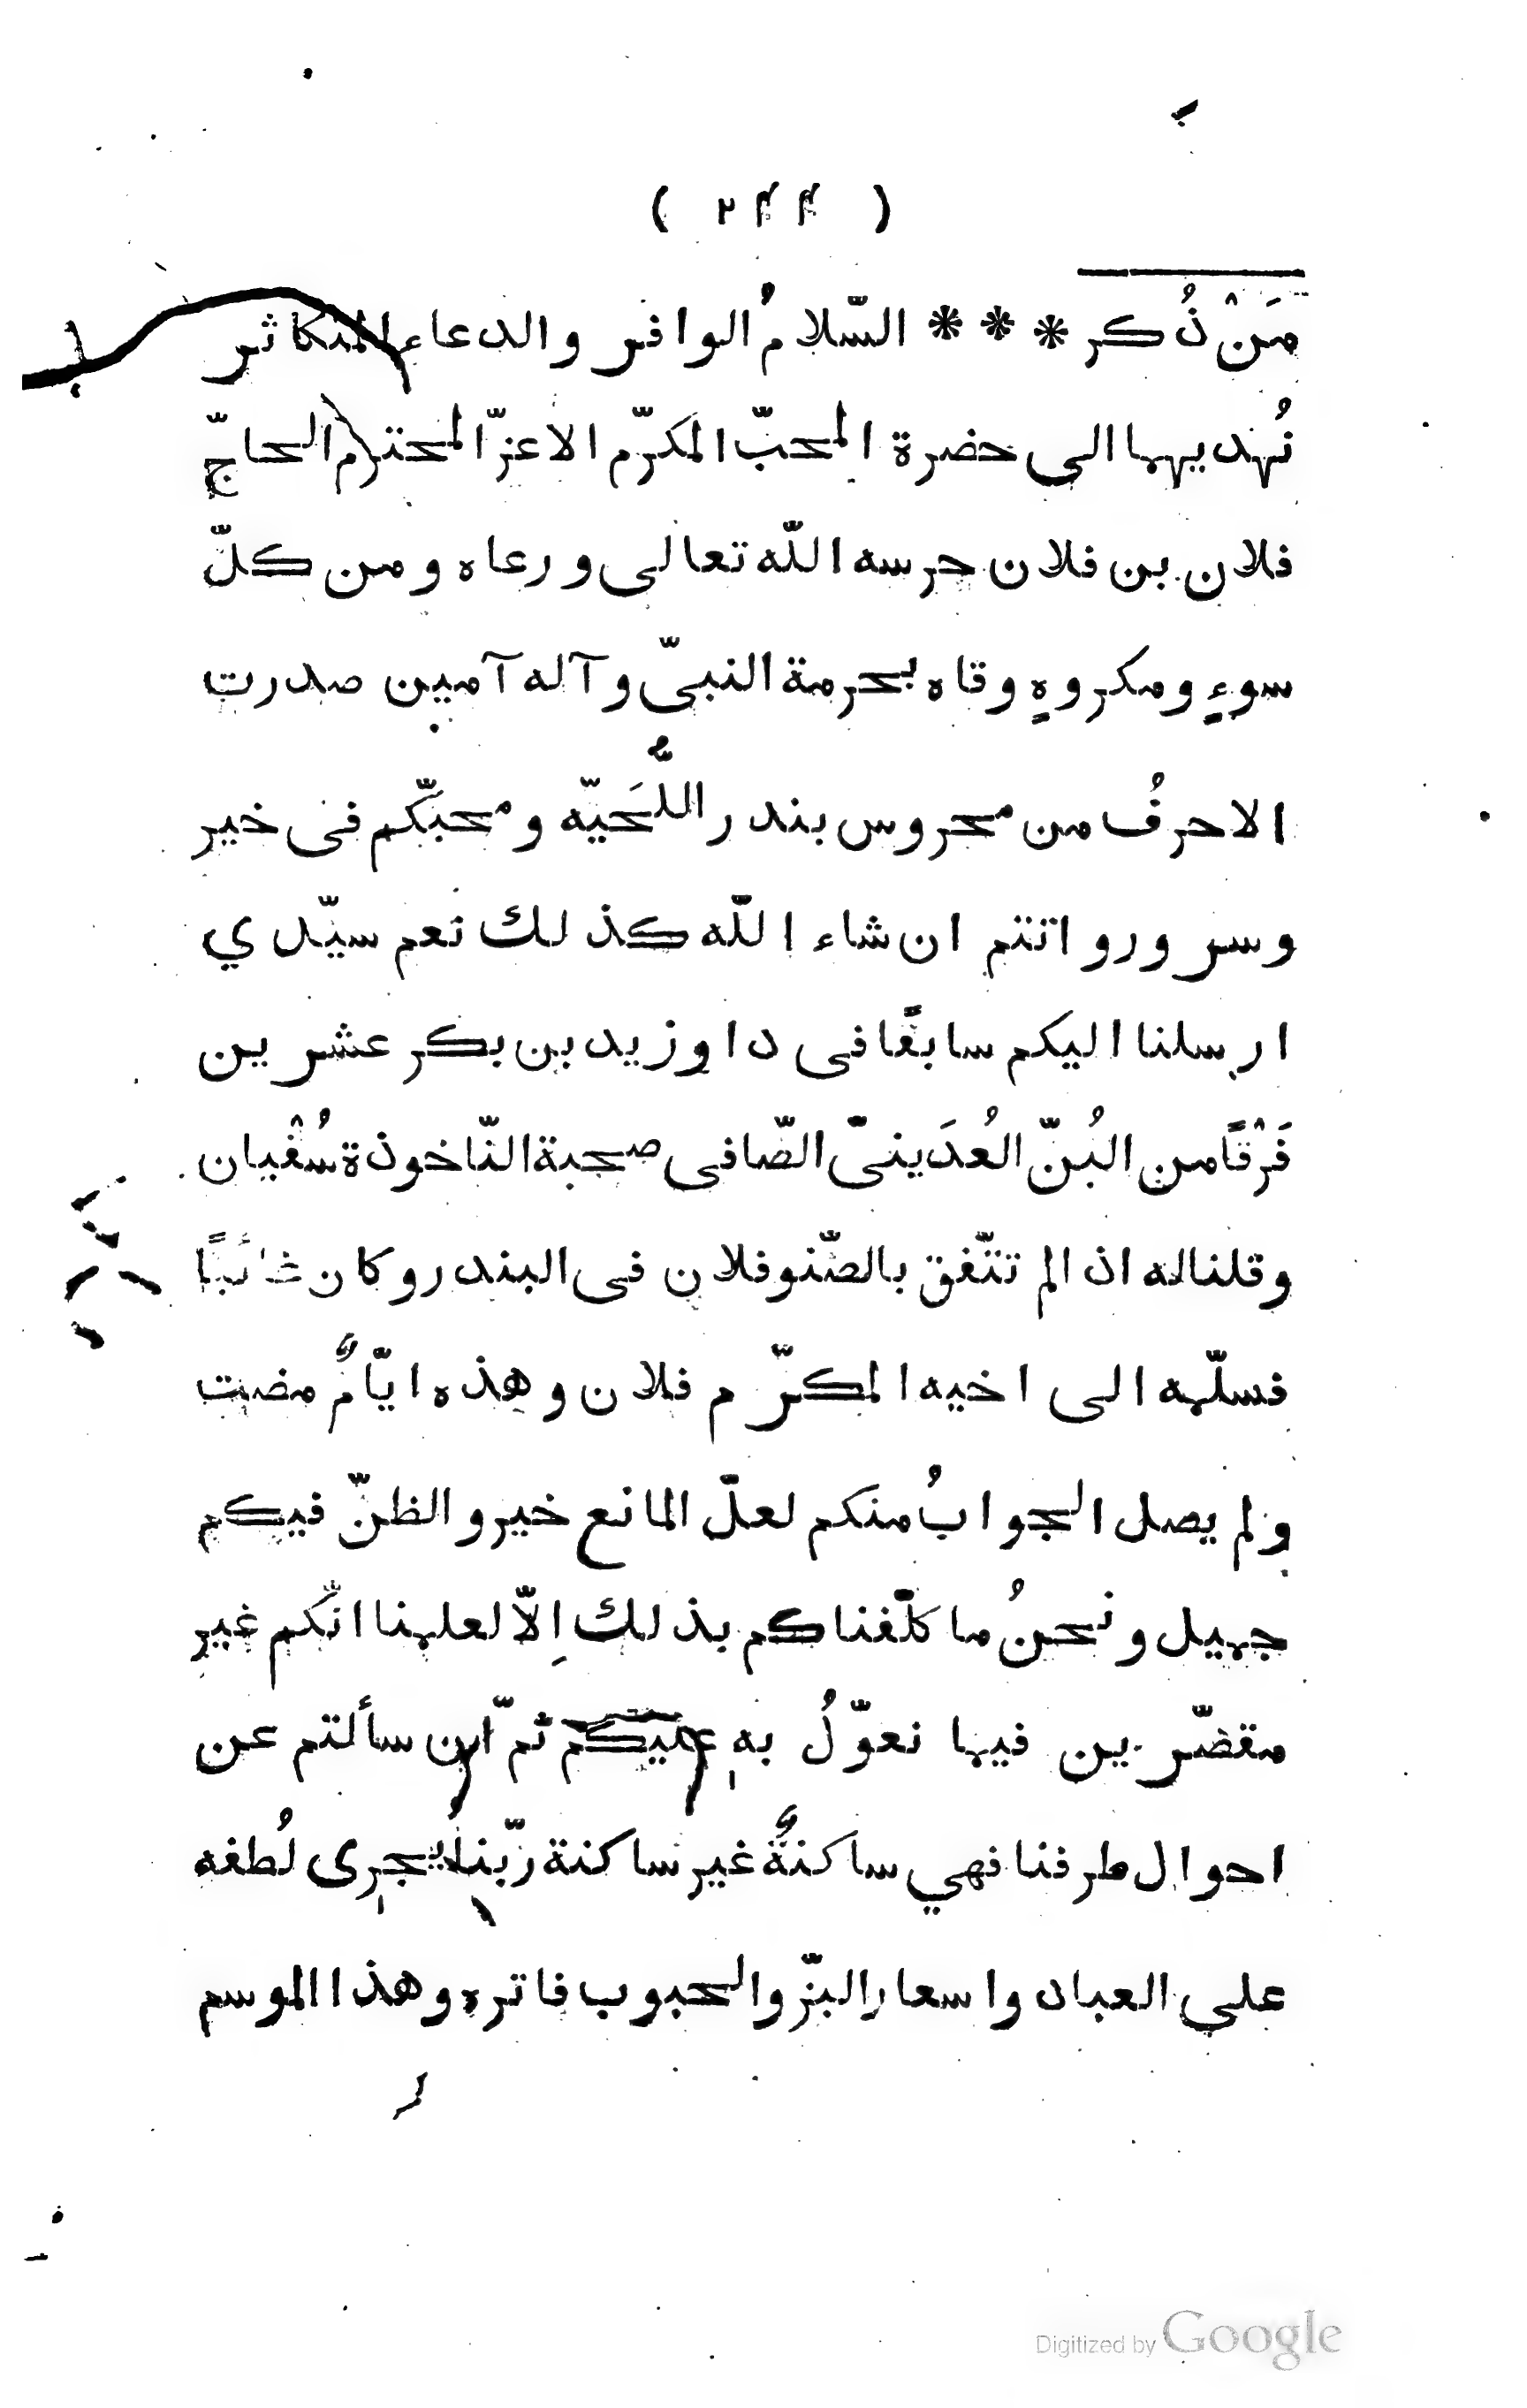 ( ٢٤٤ )
مَنْ ذُكر * * * السّلامُ الوافر والدعاء المتكاثر
نُهديهما الى حضرة المحبّ المكرّم الاعزّ المحترم الحاجّ
فلان بن فلان حرسه اللّه تعالى ورعاه ومن كلّ
سوءٍ ومكروهٍ وقاه بحرمة النبىّ وآله آمين صدرت
الاحرفُ من محروس بندر اللُّحَيّه ومحبّكم فى خير
وسرور وانتم ان شاء اللّه كذلك نعم سيّدي
ارسلنا اليكم سابقًا فى داو زيد بن بكر عشرين
فَرْقًا من البُنّ العُدَينىّ الصّافى صحبة النّاخوذة سُفْيان
وقلنا له اذا لم تتّفق بالصّنو فلان فى البندر وكان غائبًا
فسلّمه الى اخيه المكرّم فلان وهذه ايّامٌ مضت
ولم يصل الجوابُ منكم لعلّ المانع خير والظنّ فيكم
جميل ونحنُ ما كلّفناكم بذلك اِلّا لعلمنا انّكم غير
مقصّرين فيما نعوّلُ بهِ عليكم ثمّ ان سألتم عن
احوال طرفنا فهي ساكنةٌ غير ساكنة ربّنا يجرِى لُطفه
علي العباد واسعار البزّ والحبوب فاتره وهذا الموسم
Digitized by Google